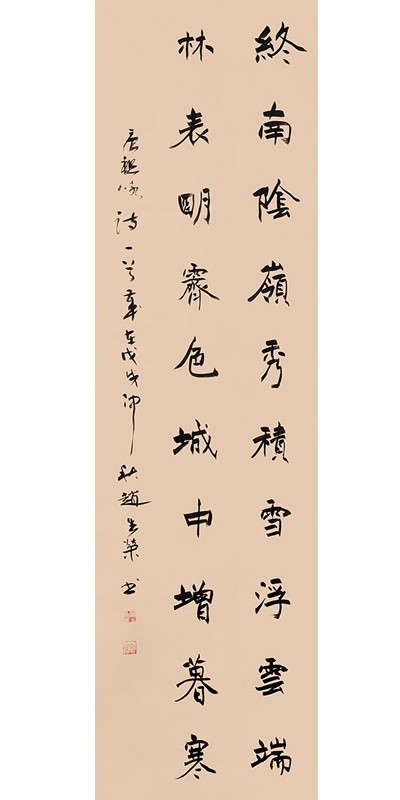 終南陰嶺秀積雪浮雲端
林表明霽色城中增暮寒
唐祖咏詩一首歲在戊戌仲秋趙生榮书